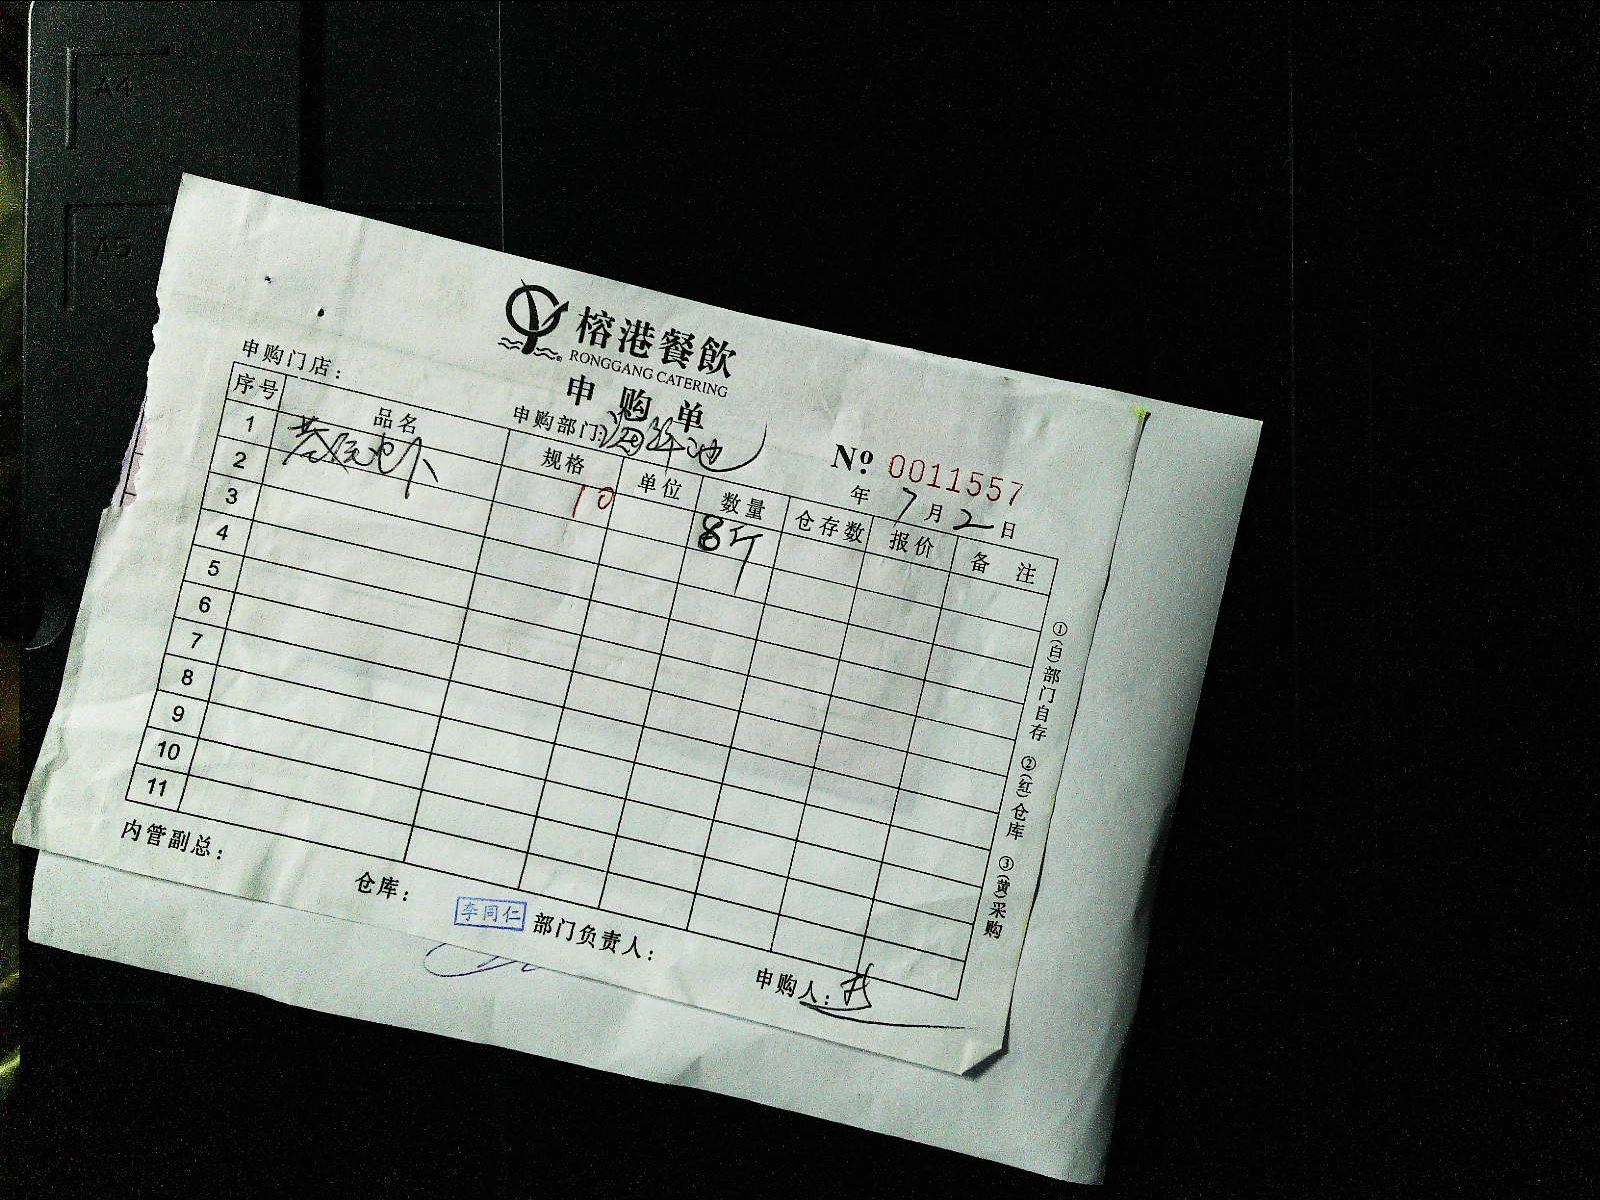 A4
A5
榕港餐飲
RONGGANG CATERING
申购单
申购门店：
申购部门：海鲜池
№ 0011557
年 7月2日
序号 品名 规格 单位 数量 仓存数 报价 备注
1 10 8斤
2
3
4
5
6
7
8
9
10
11
①(白)部门自存 ②(红)仓库 ③(黄)采购
内管副总： 仓库： 李同仁 部门负责人： 申购人：